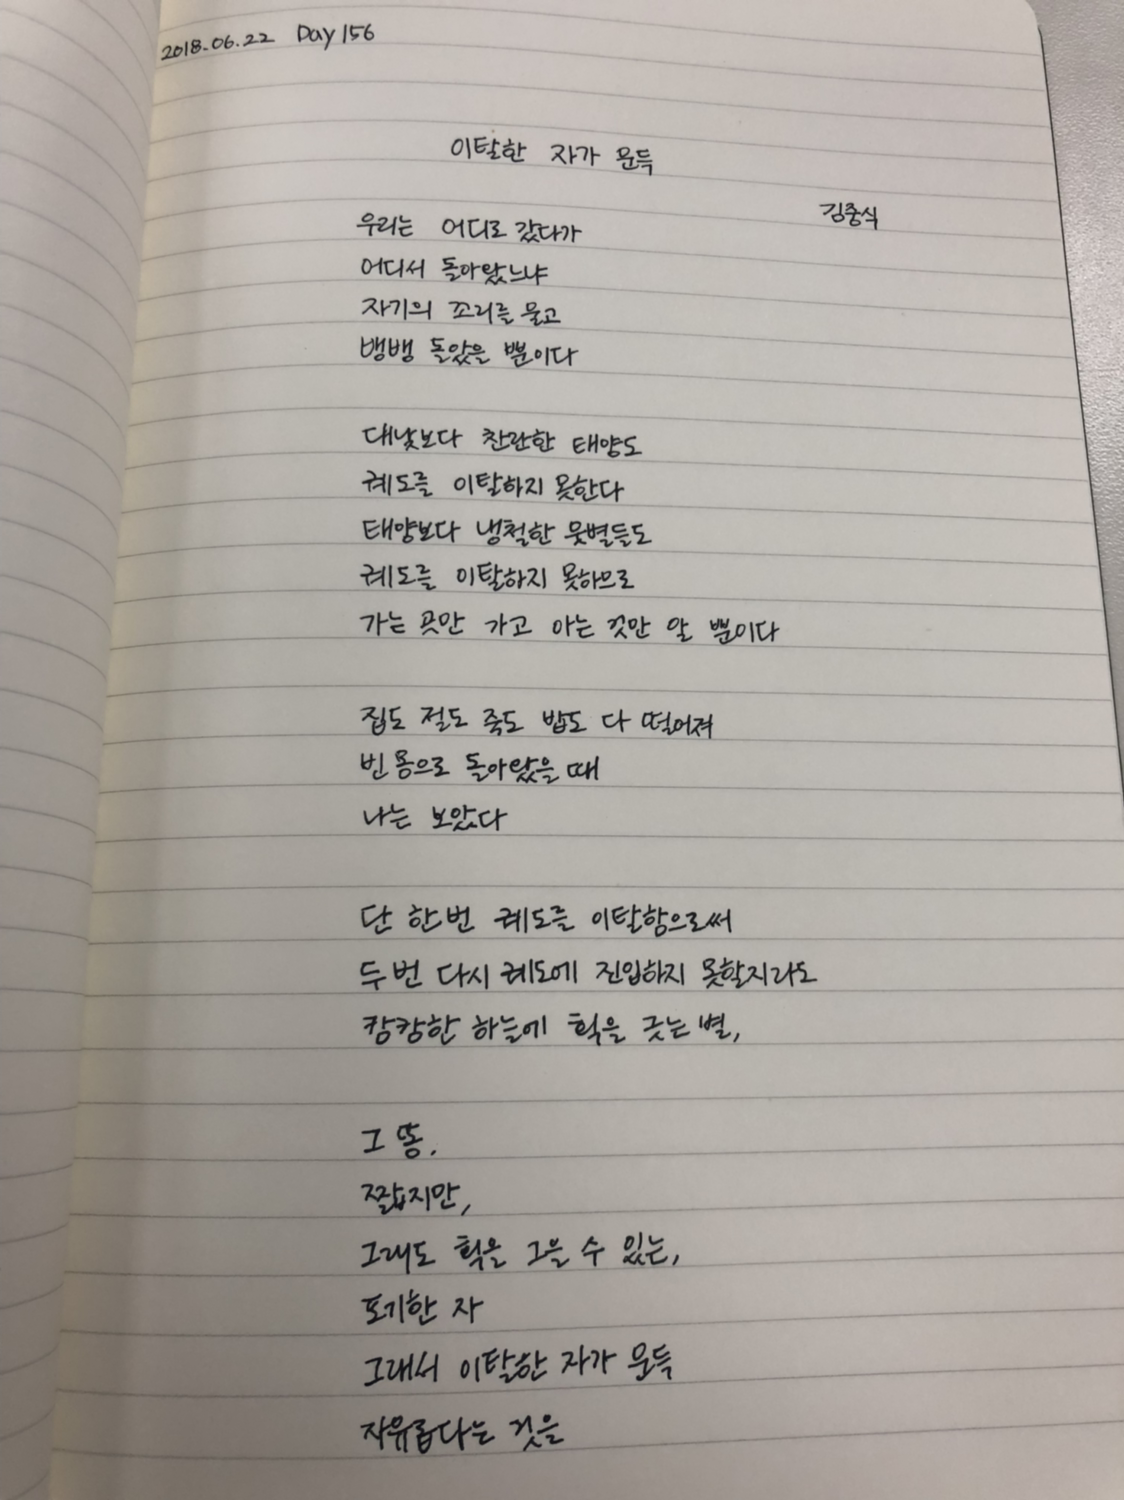 2018.06.22 Day 156
이탈한 자가 문득
김중식
우리는 어디로 갔다가
어디서 돌아왔느냐
자기의 꼬리를 물고
뱅뱅 돌았을 뿐이다
대낮보다 찬란한 태양도
궤도를 이탈하지 못한다
태양보다 냉철한 뭇별들도
궤도를 이탈하지 못하므로
가는 곳만 가고 아는 것만 알 뿐이다
집도 절도 죽도 밥도 다 떨어져
빈 몸으로 돌아왔을 때
나는 보았다
단 한 번 궤도를 이탈함으로써
두 번 다시 궤도에 진입하지 못할지라도
캄캄한 하늘에 획을 긋는 별,
그 똥.
짧지만,
그래도 획을 그을 수 있는,
포기한 자
그래서 이탈한 자가 문득
자유롭다는 것을